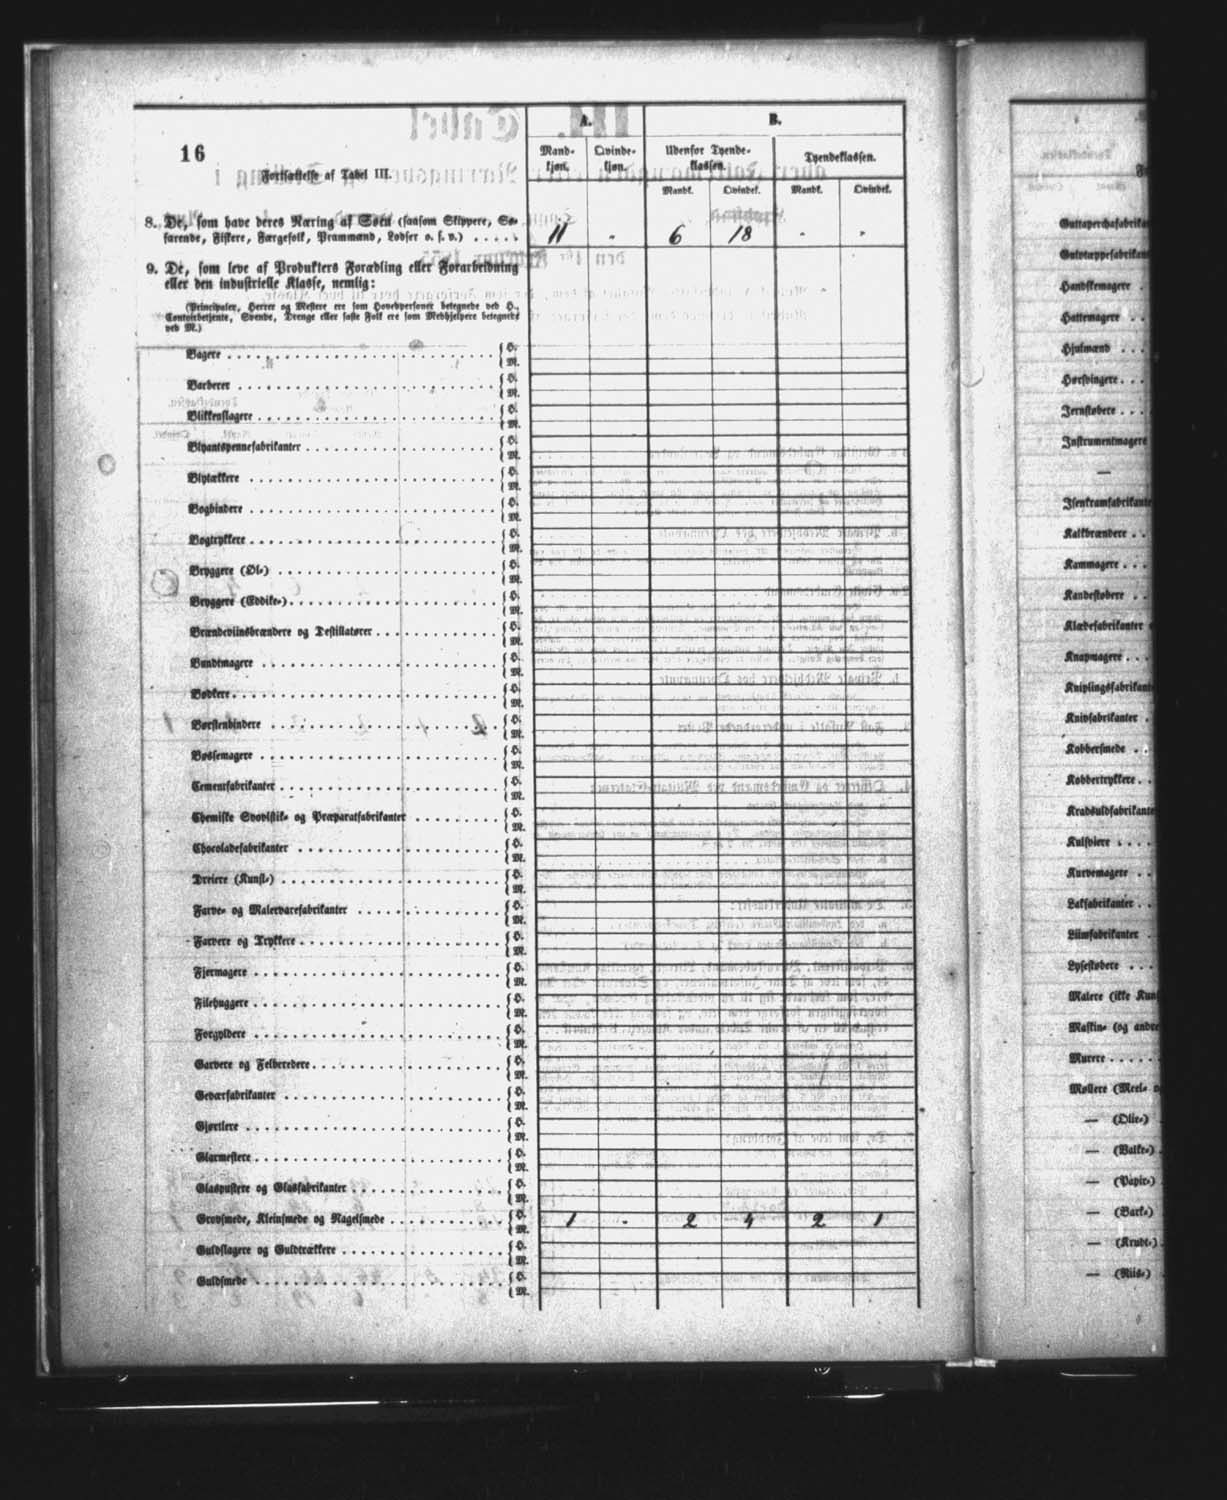 16
Fortsættelse af Tabel III.
A.
B.
Mand-
kjøn.
Qvinde-
kjøn.
Udenfor Tyende-
klassen.
Tyendeklassen.
Mandk.
Qvindek.
Mandk.
Qvindek.
8. De, som have deres Næring af Søen (saasom Skippere, Sø-
farende, Fiskere, Færgefolk, Prammænd, Lodser o. s. v.) . . . . . 11 - 6 18 - -
9. De, som leve af Produkters Forædling eller Forarbeidning
eller den industrielle Klasse, nemlig:
(Principaler, Herrer og Mestere ere som Hovedpersoner betegnede ved H.,
Contoirbetjente, Svende, Drenge eller faste Folk ere som Medhjelpere betegnede
ved M.)
Bagere { H.
M.
Barberer { H.
M.
Blikkenslagere { H.
M.
Blyantspennefabrikanter { H.
M.
Blytækkere { H.
M.
Bogbindere { H.
M.
Bogtrykkere { H.
M.
Bryggere (Øl-) { H.
M.
Bryggere (Eddike-) { H.
M.
Brændeviinsbrændere og Destillatører { H.
M.
Bundtmagere { H.
M.
Bødkere { H.
M.
Børstenbindere { H.
M.
Bøssemagere { H.
M.
Cementfabrikanter { H.
M.
Chemiske Svovlstik- og Præparatfabrikanter { H.
M.
Chocoladefabrikanter { H.
M.
Dreiere (Kunst-) { H.
M.
Farve- og Malervarefabrikanter { H.
M.
Farvere og Trykkere { H.
M.
Fjermagere { H.
M.
Filehuggere { H.
M.
Forgyldere { H.
M.
Garvere og Felberedere { H.
M.
Geværfabrikanter { H.
M.
Gjørtlere { H.
M.
Glarmestere { H.
M.
Glaspustere og Glasfabrikanter { H.
M.
Grovsmede, Kleinsmede og Nagelsmede { H. 1 - 2 4 2 1
M.
Guldslagere og Guldtrækkere { H.
M.
Guldsmede { H.
M.
Guttaperchafabrika
Gulvtæppefabrikan
Handskemagere .
Hattemagere . .
Hjulmænd . . .
Hørsvingere . . .
Jernstøbere . . .
Instrumentmagere
—
Isenkramfabrikante
Kalkbrændere . .
Kammagere . . .
Kandestøbere . .
Klædefabrikanter
Knapmagere . . .
Kniplingsfabrikant
Knivfabrikanter .
Kobbersmede . .
Kobbertrykkere . .
Kradsuldfabrikante
Kulsviere . . . .
Kurvemagere . .
Lakfabrikanter . .
Liimfabrikanter .
Lysestøbere . . .
Malere (ikke Kun
Maskin- (og andre
Murere . . . . . .
Møllere (Meel- o
— (Olie-)
— (Valke-)
— (Papir-)
— (Bark-)
— (Krudt-)
— (Riis-)